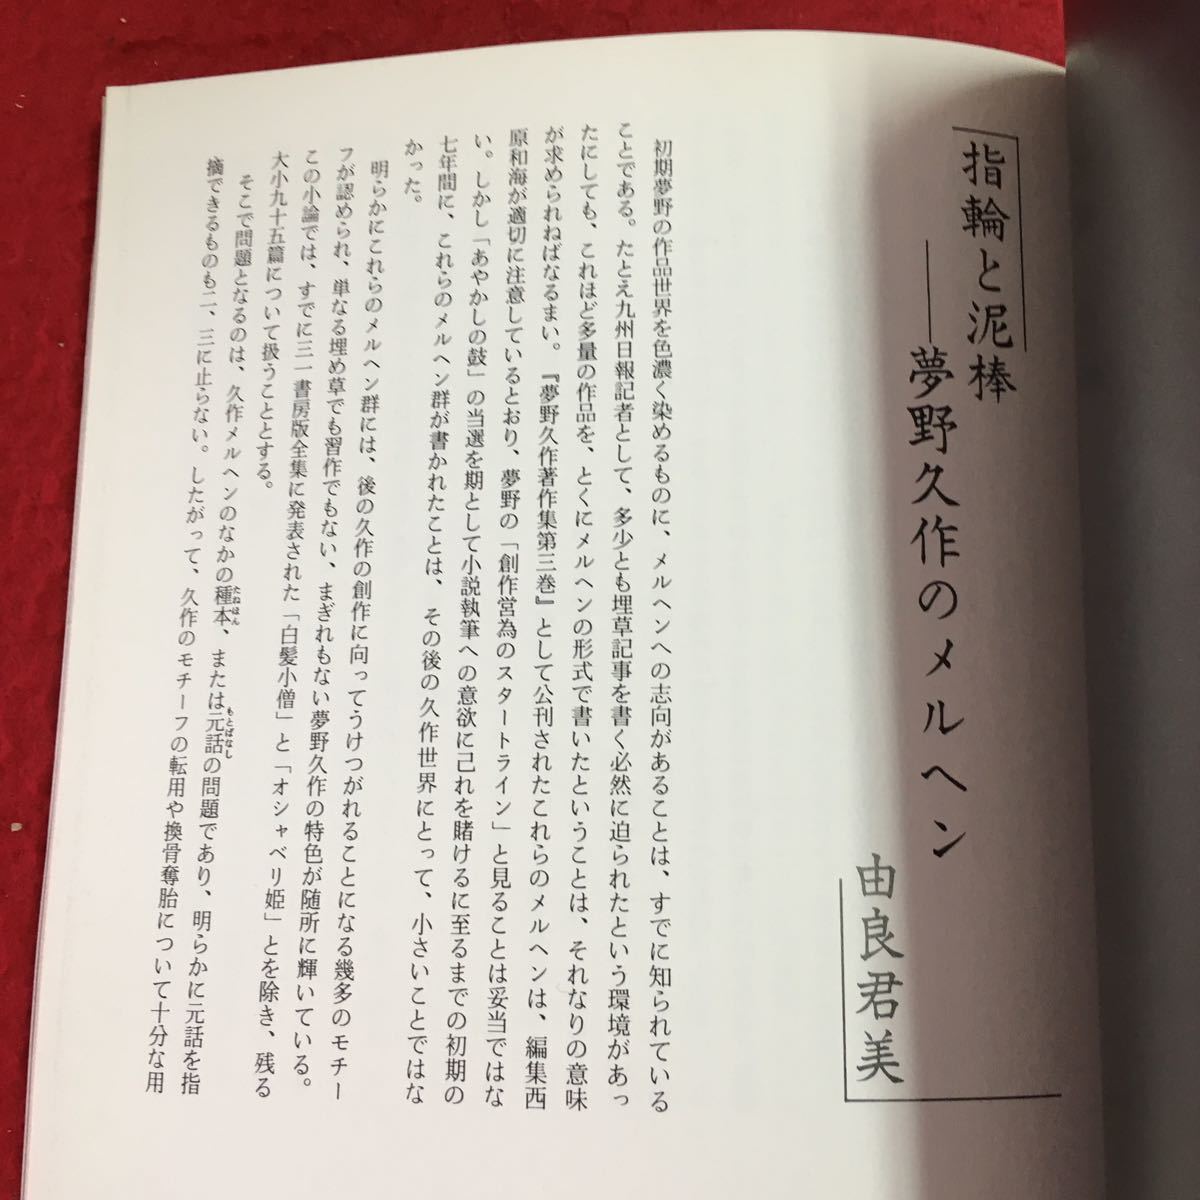 指輪と泥棒
――夢野久作のメルヘン
由良君美
初期夢野の作品世界を色濃く染めるものに、メルヘンへの志向があることは、すでに知られている
ことである。たとえ九州日報記者として、多少とも埋草記事を書く必然に迫られたという環境があっ
たにしても、これほど多量の作品を、とくにメルヘンの形式で書いたということは、それなりの意味
が求められねばなるまい。『夢野久作著作集第三巻』として公刊されたこれらのメルヘンは、編集西
原和海が適切に注意しているとおり、夢野の「創作営為のスタートライン」と見ることは妥当ではな
い。しかし「あやかしの鼓」の当選を期として小説執筆への意欲に己れを賭けるに至るまでの初期の
七年間に、これらのメルヘン群が書かれたことは、その後の久作世界にとって、小さいことではな
かった。
明らかにこれらのメルヘン群には、後の久作の創作に向ってうけつがれることになる幾多のモチー
フが認められ、単なる埋め草でも習作でもない、まぎれもない夢野久作の特色が随所に輝いている。
この小論では、すでに三一書房版全集に発表された「白髪小僧」と「オシャベリ姫」とを除き、残る
大小九十五篇について扱うこととする。
そこで問題となるのは、久作メルヘンのなかの種本（たねほん）、または元話（もとばなし）の問題であり、明らかに元話を指
摘できるものも二、三に止らない。したがって、久作のモチーフの転用や換骨奪胎について十分な用